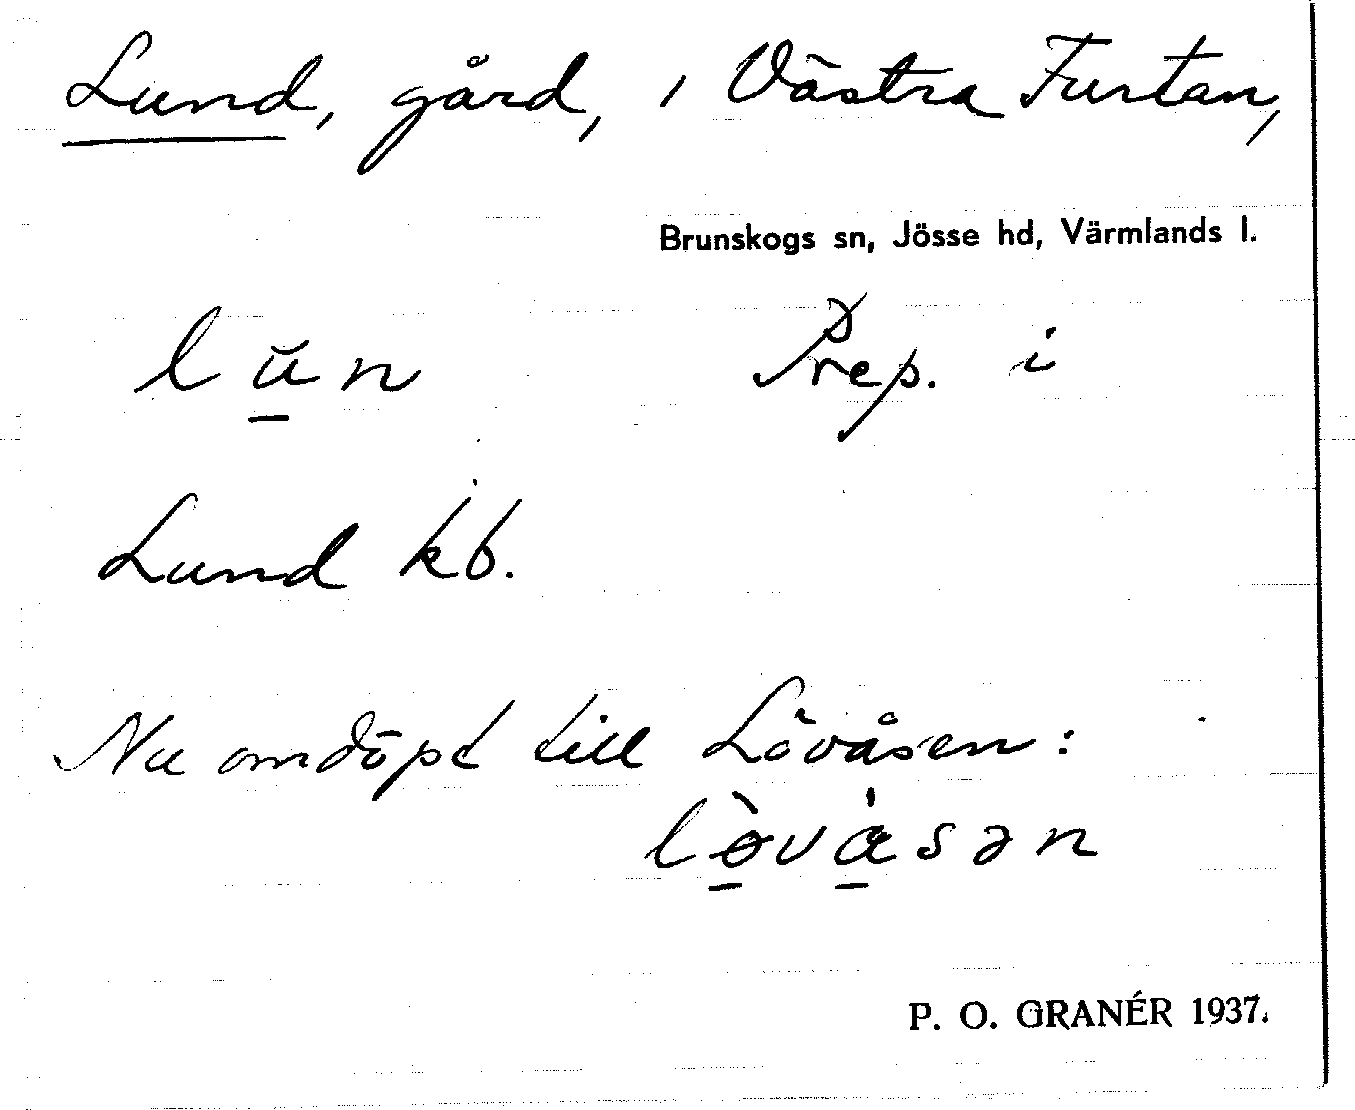 Lund, gård, i Västra Furtan,
Brunskogs sn, Jösse hd, Värmlands l.
lun Prep. i
Lund kb.
Nu omdöpt till Lövåsen:
lòvåsən
P. O. GRANÉR 1937.